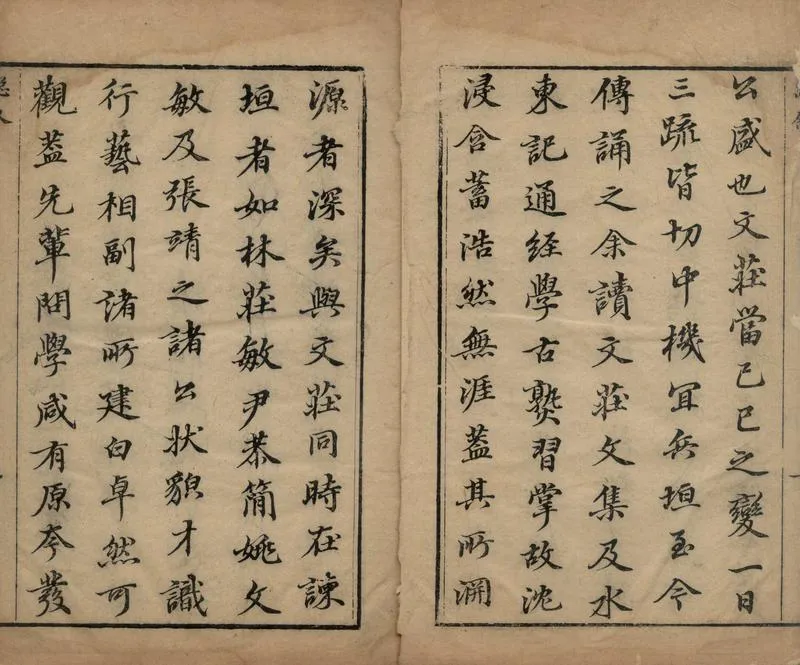 公盛也文莊當己巳之變一日
三疏皆切中機冝兵垣至今
傳誦之余讀文莊文集及水
東記通經學古爨習掌故沈
浸含蓄浩然無涯葢其所淵
源者深矣與文莊同時在諫
垣者如林莊敏尹恭簡姚文
敏及張靖之諸公狀貌才識
行藝相副諸所建白卓然可
觀葢先輩問學咸有原夲發